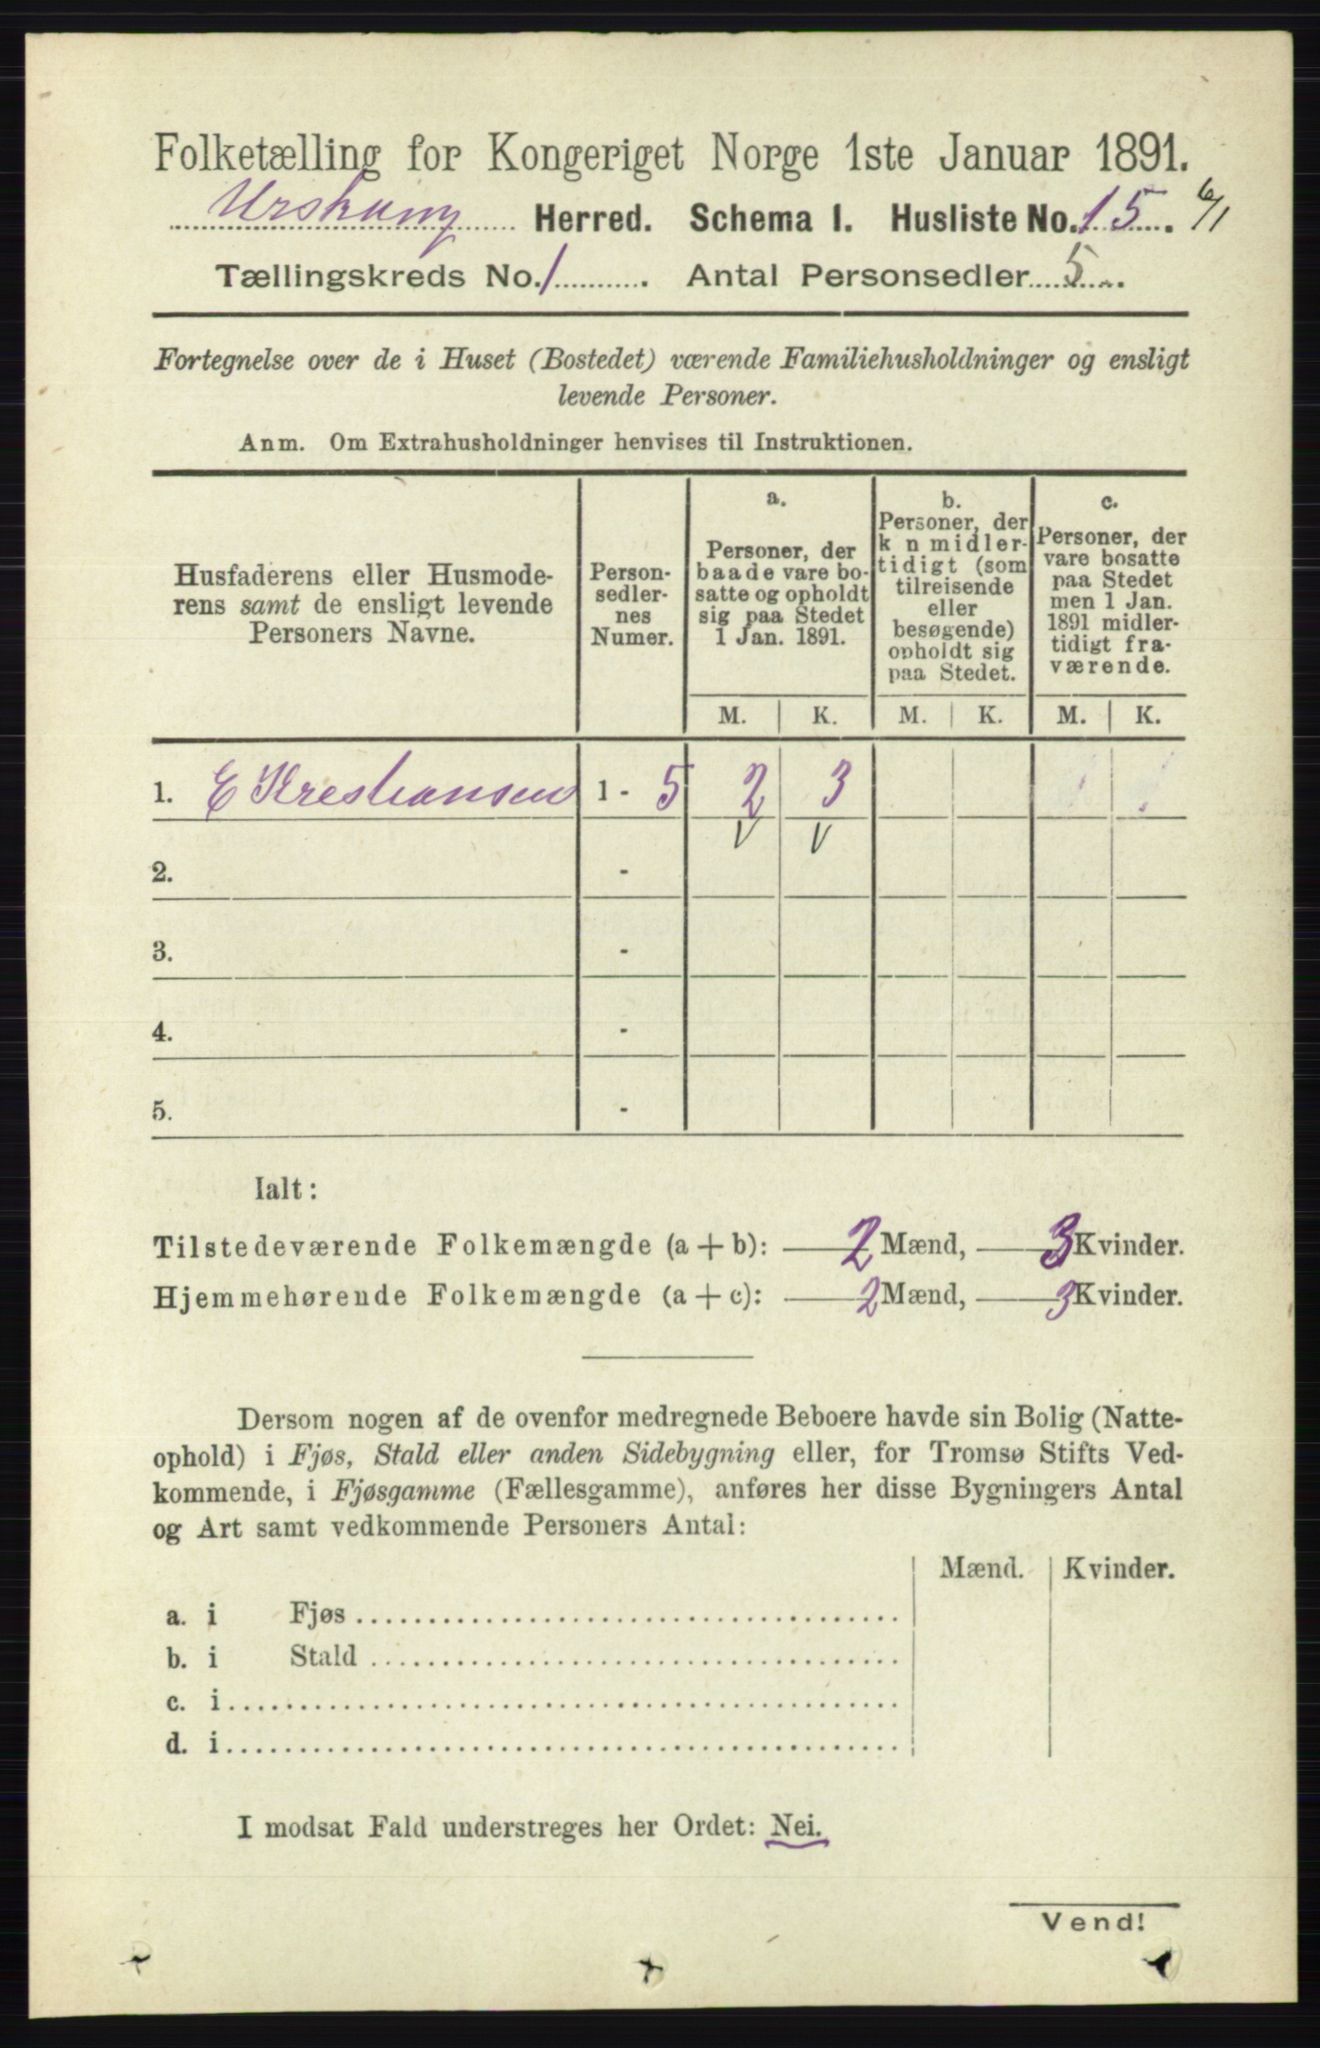 Folketælling for Kongeriget Norge 1ste Januar 1891.
Urskoug Herred. Schema 1. Husliste No. 15. 6/1
Tællingskreds No. 1. Antal Personsedler 5.
Fortegnelse over de i Huset (Bostedet) værende Familiehusholdninger og ensligt
levende Personer.
Anm. Om Extrahusholdninger henvises til Instruktionen.
Husfaderens eller Husmode-
rens samt de ensligt levende
Personers Navne.
Person-
sedler-
nes
Numer.
a.
Personer, der
baade vare bo-
satte og opholdt
sig paa Stedet
1 Jan. 1891.
b.
Personer, der
k n midler-
tidigt (som
tilreisende
eller
besøgende)
opholdt sig
paa Stedet.
c.
Personer, der
vare bosatte
paa Stedet
men 1 Jan.
1891 midler-
tidigt fra-
værende.
M. K. M. K. M. K.
1. E Kreshansen 1 - 5 2 3
V V
2. -
3. -
4. -
5. -
Ialt:
Tilstedeværende Folkemængde (a + b): 2 Mænd, 3 Kvinder.
Hjemmehørende Folkemængde (a + c): 2 Mænd, 3 Kvinder.
Dersom nogen af de ovenfor medregnede Beboere havde sin Bolig (Natte-
ophold) i Fjøs, Stald eller anden Sidebygning eller, for Tromsø Stifts Ved-
kommende, i Fjøsgamme (Fællesgamme), anføres her disse Bygningers Antal
og Art samt vedkommende Personers Antal:
Mænd. Kvinder.
a. i Fjøs
b. i Stald
c. i
d. i
I modsat Fald understreges her Ordet: Nei.
Vend!